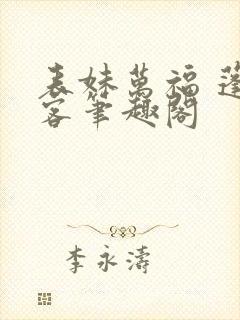 表妹萬福 蓬
客筆趣閣
李永濤